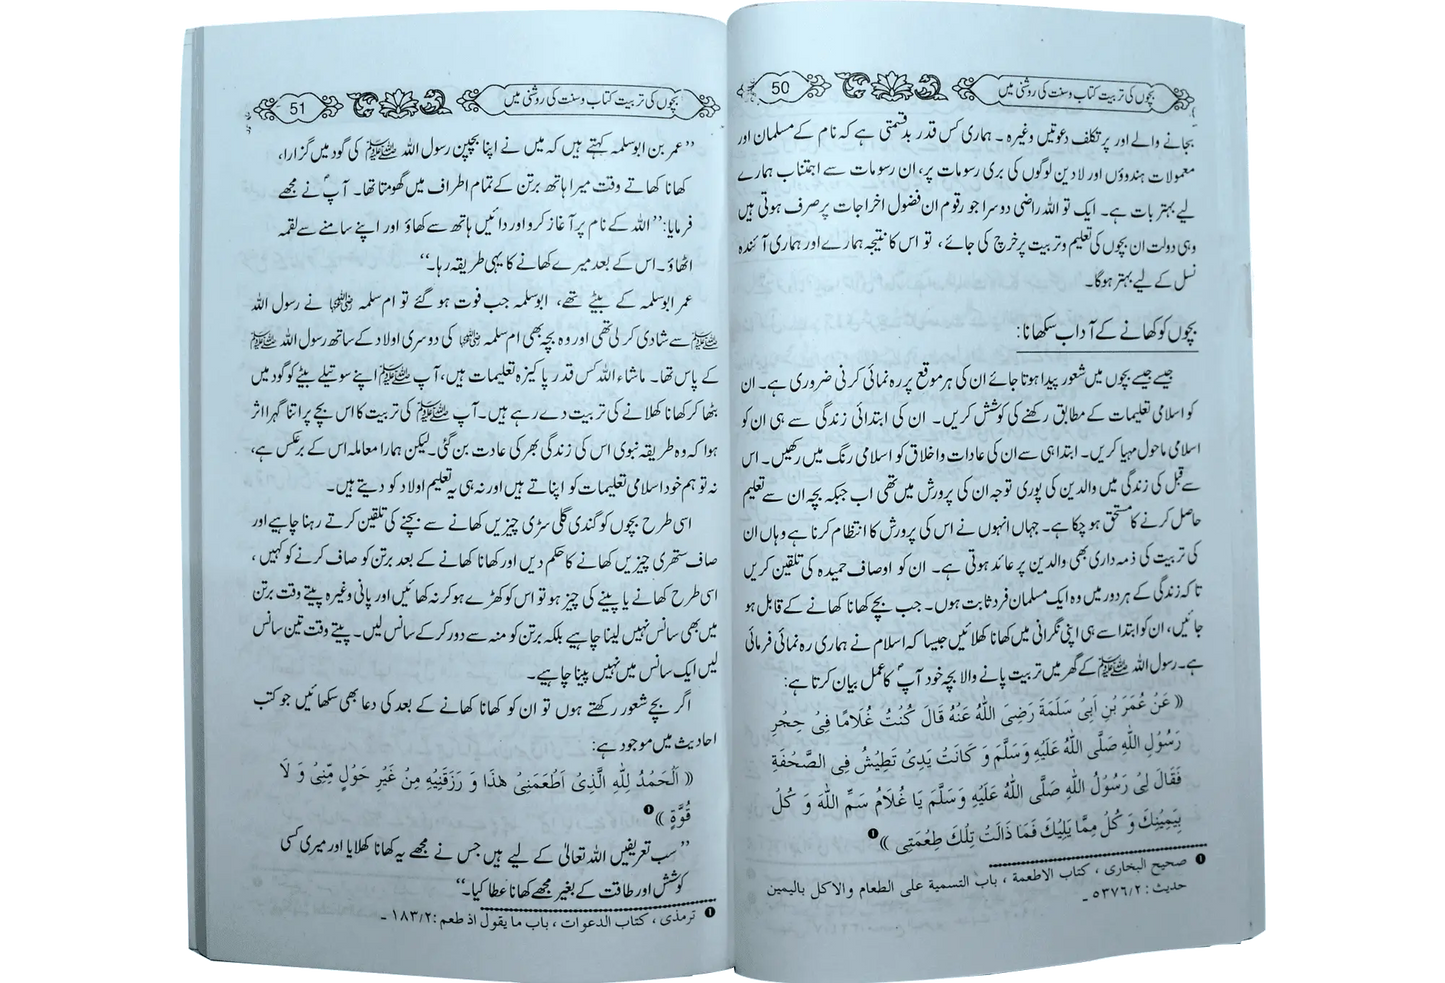 بچوں کی تربیت کتاب وسنت کی روشنی میں
50
بجانے والے اور پر تکلف دعوتیں وغیرہ ۔ ہماری کس قدر بدقسمتی ہے کہ نام کے مسلمان اور
معمولات ہندوؤں اور لادین لوگوں کی بری رسومات پر، ان رسومات سے اجتناب ہمارے
لیے بہتر بات ہے۔ ایک تو اللہ راضی دوسرا جو رقوم ان فضول اخراجات پر صرف ہوتی ہیں
وہی دولت ان بچوں کی تعلیم وتربیت پر خرچ کی جائے، تو اس کا نتیجہ ہمارے اور ہماری آئندہ
نسل کے لیے بہتر ہوگا۔
بچوں کو کھانے کے آداب سکھانا:
جیسے جیسے بچوں میں شعور پیدا ہوتا جائے ان کی ہر موقع پر رہ نمائی کرنی ضروری ہے۔ ان
کو اسلامی تعلیمات کے مطابق رکھنے کی کوشش کریں۔ ان کی ابتدائی زندگی سے ہی ان کو
اسلامی ماحول مہیا کریں۔ ابتدا ہی سے ان کی عادات واخلاق کو اسلامی رنگ میں رکھیں۔ اس
سے قبل کی زندگی میں والدین کی پوری توجہ ان کی پرورش میں تھی اب جبکہ بچہ ان سے تعلیم
حاصل کرنے کا مستحق ہو چکا ہے۔ جہاں انہوں نے اس کی پرورش کا انتظام کرنا ہے وہاں ان
کی تربیت کی ذمہ داری بھی والدین پر عائد ہوتی ہے۔ ان کو اوصاف حمیدہ کی تلقین کریں
تا کہ زندگی کے ہر دور میں وہ ایک مسلمان فرد ثابت ہوں۔ جب بچے کھانا کھانے کے قابل ہو
جائیں، ان کو ابتدا سے ہی اپنی نگرانی میں کھانا کھلائیں جیسا کہ اسلام نے ہماری رہ نمائی فرمائی
ہے۔ رسول اللہ ﷺ کے گھر میں تربیت پانے والا بچہ خود آپؐ کا عمل بیان کرتا ہے:
(( عَنْ عُمَرَ بْنِ اَبِیْ سَلَمَةَ رَضِیَ اللّٰهُ عَنْهُ قَالَ كُنْتُ غُلَامًا فِیْ حِجْرِ
رَسُوْلِ اللّٰهِ صَلَّی اللّٰهُ عَلَیْهِ وَسَلَّمَ وَ كَانَتْ یَدِیْ تَطِیْشُ فِی الصَّحْفَةِ
فَقَالَ لِیْ رَسُوْلُ اللّٰهِ صَلَّی اللّٰهُ عَلَیْهِ وَسَلَّمَ یَا غُلَامُ سَمِّ اللّٰهَ وَ كُلْ
بِیَمِیْنِكَ وَ كُلْ مِمَّا یَلِیْكَ فَمَا ذَالَتْ تِلْكَ طِعْمَتِی ))❶
❶ صحيح البخاری ، كتاب الاطعمة ، باب التسمية على الطعام والاكل باليمين
حديث : ٥٣٧٦/٢ ۔
بچوں کی تربیت کتاب وسنت کی روشنی میں
51
’’عمر بن ابوسلمہ کہتے ہیں کہ میں نے اپنا بچپن رسول اللہ ﷺ کی گود میں گزارا،
کھانا کھاتے وقت میرا ہاتھ برتن کے تمام اطراف میں گھومتا تھا۔ آپؐ نے مجھے
فرمایا: ’’اللہ کے نام پر آغاز کرو اور دائیں ہاتھ سے کھاؤ اور اپنے سامنے سے لقمہ
اٹھاؤ۔ اس کے بعد میرے کھانے کا یہی طریقہ رہا۔‘‘
عمر ابوسلمہ کے بیٹے تھے، ابوسلمہ جب فوت ہو گئے تو ام سلمہ رضی اللہ عنہا نے رسول اللہ
ﷺ سے شادی کر لی تھی اور وہ بچہ بھی ام سلمہ رضی اللہ عنہا کی دوسری اولاد کے ساتھ رسول اللہ ﷺ
کے پاس تھا۔ ماشاء اللہ کس قدر پاکیزہ تعلیمات ہیں، آپ ﷺ اپنے سوتیلے بیٹے کو گود میں
بٹھا کر کھانا کھلانے کی تربیت دے رہے ہیں۔ آپ ﷺ کی تربیت کا اس بچے پر اتنا گہرا اثر
ہوا کہ وہ طریقہ نبوی اس کی زندگی بھر کی عادت بن گئی۔ لیکن ہمارا معاملہ اس کے برعکس ہے،
نہ تو ہم خود اسلامی تعلیمات کو اپناتے ہیں اور نہ ہی یہ تعلیم اولاد کو دیتے ہیں۔
اسی طرح بچوں کو گندی گلی سڑی چیزیں کھانے سے بچنے کی تلقین کرتے رہنا چاہیے اور
صاف ستھری چیزیں کھانے کا حکم دیں اور کھانا کھانے کے بعد برتن کو صاف کرنے کو کہیں،
اسی طرح کھانے یا پینے کی چیز ہو تو اس کو کھڑے ہو کر نہ کھائیں اور پانی وغیرہ پیتے وقت برتن
میں بھی سانس نہیں لینا چاہیے بلکہ برتن کو منہ سے دور کر کے سانس لیں۔ پیتے وقت تین سانس
لیں ایک سانس میں نہیں پینا چاہیے۔
اگر بچے شعور رکھتے ہوں تو ان کو کھانا کھانے کے بعد کی دعا بھی سکھائیں جو کتب
احادیث میں موجود ہے:
(( اَلْحَمْدُ لِلّٰهِ الَّذِیْ اَطْعَمَنِیْ هٰذَا وَ رَزَقَنِیْهِ مِنْ غَیْرِ حَوْلٍ مِّنِّیْ وَ لَا
قُوَّةٍ ))❶
’’سب تعریفیں اللہ تعالیٰ کے لیے ہیں جس نے مجھے یہ کھانا کھلایا اور میری کسی
کوشش اور طاقت کے بغیر مجھے کھانا عطا کیا۔‘‘
❶ ترمذی ، كتاب الدعوات ، باب ما يقول اذ طعم : ١٨٣/٢ ۔